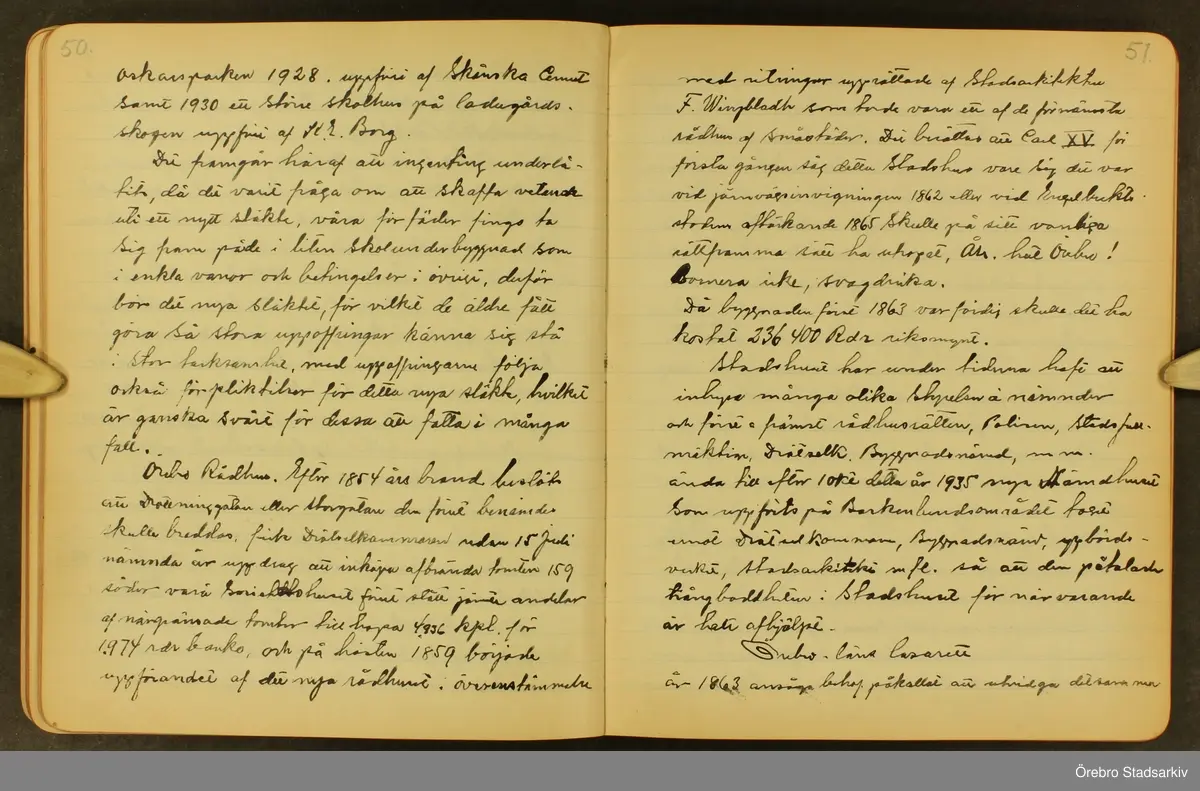 50.
Oskarsparken 1928. uppförd af Skånska Cement
samt 1930 ett större skolhus på ladugårds-
skogen uppförd af K. E. Borg.
Det framgår häraf att ingenting underlå-
tits, då det varit fråga om att skaffa vetande
uti ett nytt släkte, våra förfäder fingo ta
sig fram både i liten skolunderbyggnad som
i enkla vanor och betingelser i övrigt, derför
bör det nya släktet, för vilket de äldre fått
göra så stora uppoffringar känna sig stå
i stor tacksamhet, med uppoffringarne följa
också förpliktilser för detta nya släkte, hvilket
är ganska svårt för dessa att fatta i många
fall.
Örebro Rådhus. Efter 1854 års brand beslöts
att Drottninggatan eller Storgatan den förut benämdes
skulle breddas, fick Drätselkammaren redan 15 Juli
nämnda år uppdrag att inköpa afbrända tomten 159
söder vara förut stått jämte andelar
af närgränsade tomter till hopa 4,936 kpl. för
1,974 rdr banko, och på hösten 1859 började
uppförandet af det nya rådhuset i överenstämmelse
51.
med ritningar upprättade af Stadsarkitekten
F. Wingbladh som torde vara ett af de förnämsta
rådhus af småstäder. Det berättas att Carl XV för
första gången såg detta Stadshus vare sig det var
vid järnvägsinvigningen 1862 eller vid Engelbrekts-
stodens aftäckande 1865 skulle på sitt vanliga
rättframma sätt ha utropat, Åh. hut Örebro!
Bornera icke, svagdricka.
Då byggnaden förut 1863 var färdig skulle det ha
kostat 236 400 Rdr riksmynt.
Stadshuset har under tiderna haft att
inhysa många olika styrelser å nämnder
och först o främst rådhusrätten, Polisen, Stadsfull-
mäktin, Drätselk. Byggnadsnämd, m.m.
ända till efter 1 detta år 1935 nya Nämdhuset
som uppförts på Barkenlundsområdet tagit
emot Drätselkammaren, Byggnadsnämd, uppbörds-
verket, Stadsarkitekt m.fl. så att den påtalade
trångboddheten i Stadshuset för närvarande
är helt afhjälpt.
Örebro läns lasarett
år 1863 ansågs behof påkallat att utvidga detsamma
Örebro Stadsarkiv